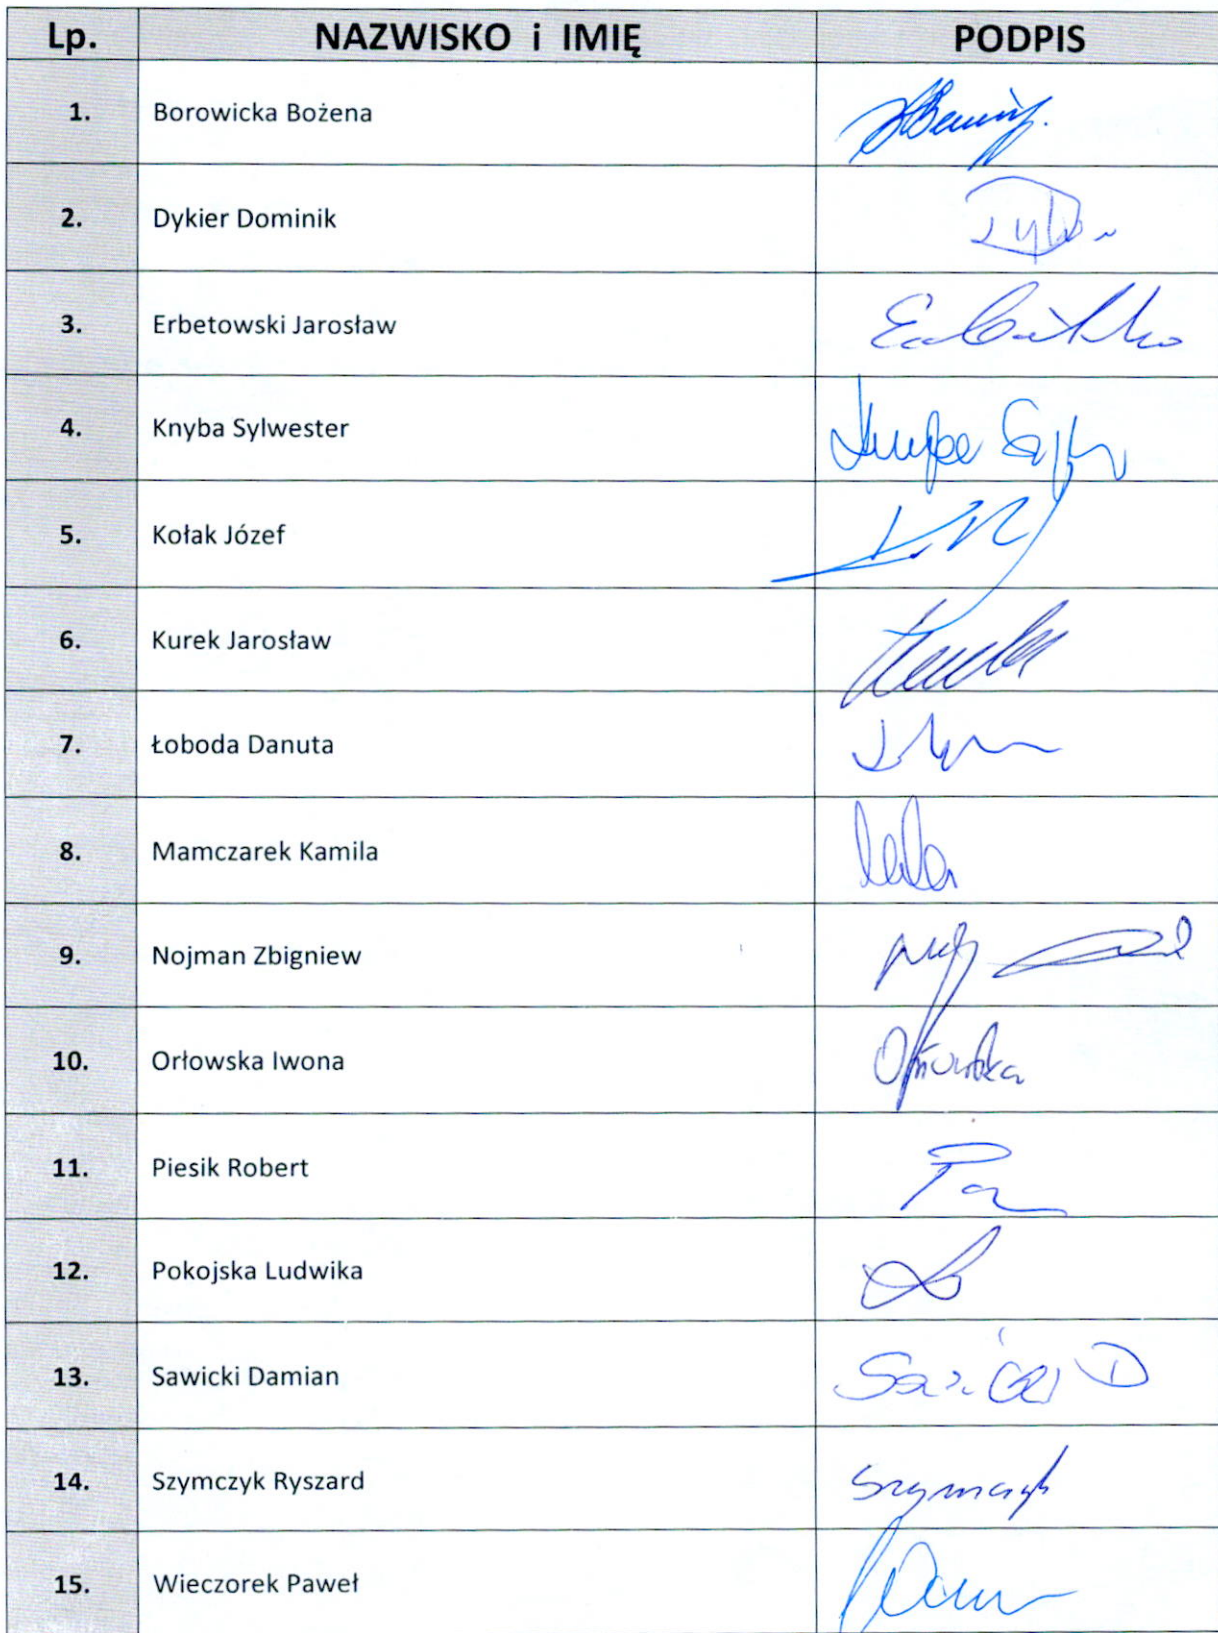 Lp. NAZWISKO i IMIĘ PODPIS
1. Borowicka Bożena
2. Dykier Dominik
3. Erbetowski Jarosław
4. Knyba Sylwester
5. Kołak Józef
6. Kurek Jarosław
7. Łoboda Danuta
8. Mamczarek Kamila
9. Nojman Zbigniew
10. Orłowska Iwona
11. Piesik Robert
12. Pokojska Ludwika
13. Sawicki Damian
14. Szymczyk Ryszard Szymczyk
15. Wieczorek Paweł